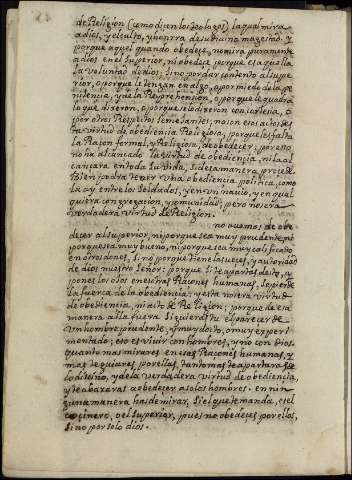 de Religion (como dicen los teologos) la qual mira
a dios, y el culto, y honrra de su divina magestad. y
porque aquel quando obedece, no mira puramente
a dios en el superior, ni obedece porque es aquella
la voluntad de dios; sino por dar contento al supe
rior, o porque le tenga en algo, o por miedo de la pe
nitencia, y de la Reprehension, o porque le quadra
lo que dixeron, o porque se lo dixeron con cortesia, o
por otros Respectos semejantes; no son essos actos de
la virtud de obediencia Religiosa, porque les falta
la Raçon formal, y Religiosa, de obedecer; por esso
no ha alcançado la virtud de obediencia, ni la al
cançara en toda su vida, si desta manera procede.
Bien podra tener una obediencia politica, como
la ay entre los soldados, y en un navio, y en qual
quiera congregacion, y comunidad; pero no sera
verdadera virtud de Religion.
no avemos de obe
decer al superior, ni porque sea muy prudente, ni
porque sea muy bueno, ni porque sea muy calificado
en otros dones, si no porque tiene las veces, y autoridad
de dios nuestro señor: porque si te apartas desto, y
pones los ojos en essotras Raçones humanas, se pierde
la fuerça de la obediencia; y esta no sera virtud
de obediencia, ni acto de Religion; porque de essa
manera alla fuera siguieras tu el parecer de
un hombre prudente, y muy docto, o muy experi
mentado; esto es vivir con hombres, y no con dios.
quanto mas mirares en essas Raçones humanas, y
mas te guiares por ellas, tanto mas te apartaras de
lo divino, y de la verdadera virtud de obediencia,
y te abaxaras a obedecer a solos hombres. en nin
guna manera has de mirar, si el que te manda, es el
cocinero, o el superior, pues no obedeces por ellos,
sino por solo dios.